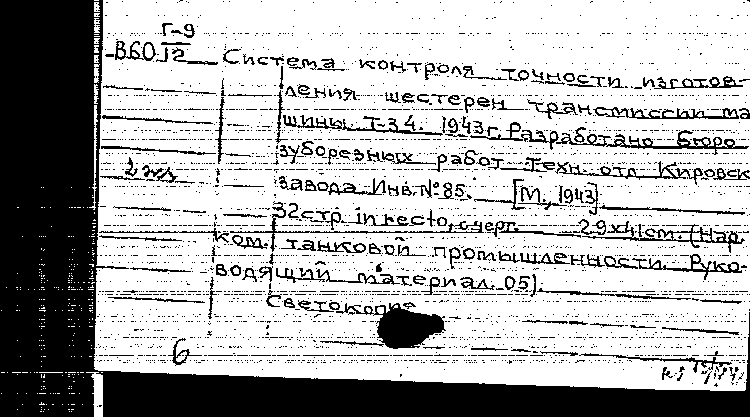 Г-9
В60 12 Система контроля точности изготов-
ления шестерен трансмиссии ма
шины Т-34. 1943г. Разработано Бюро
зуборезных работ техн. отд. Кировск
2 экз
завода Инв. № 85. [М., 1943]
32стр. in recto, с черт. 29х41см. (Нар.
ком. танковой промышленности. Руко-
водящий материал. 05).
Светокопия
6